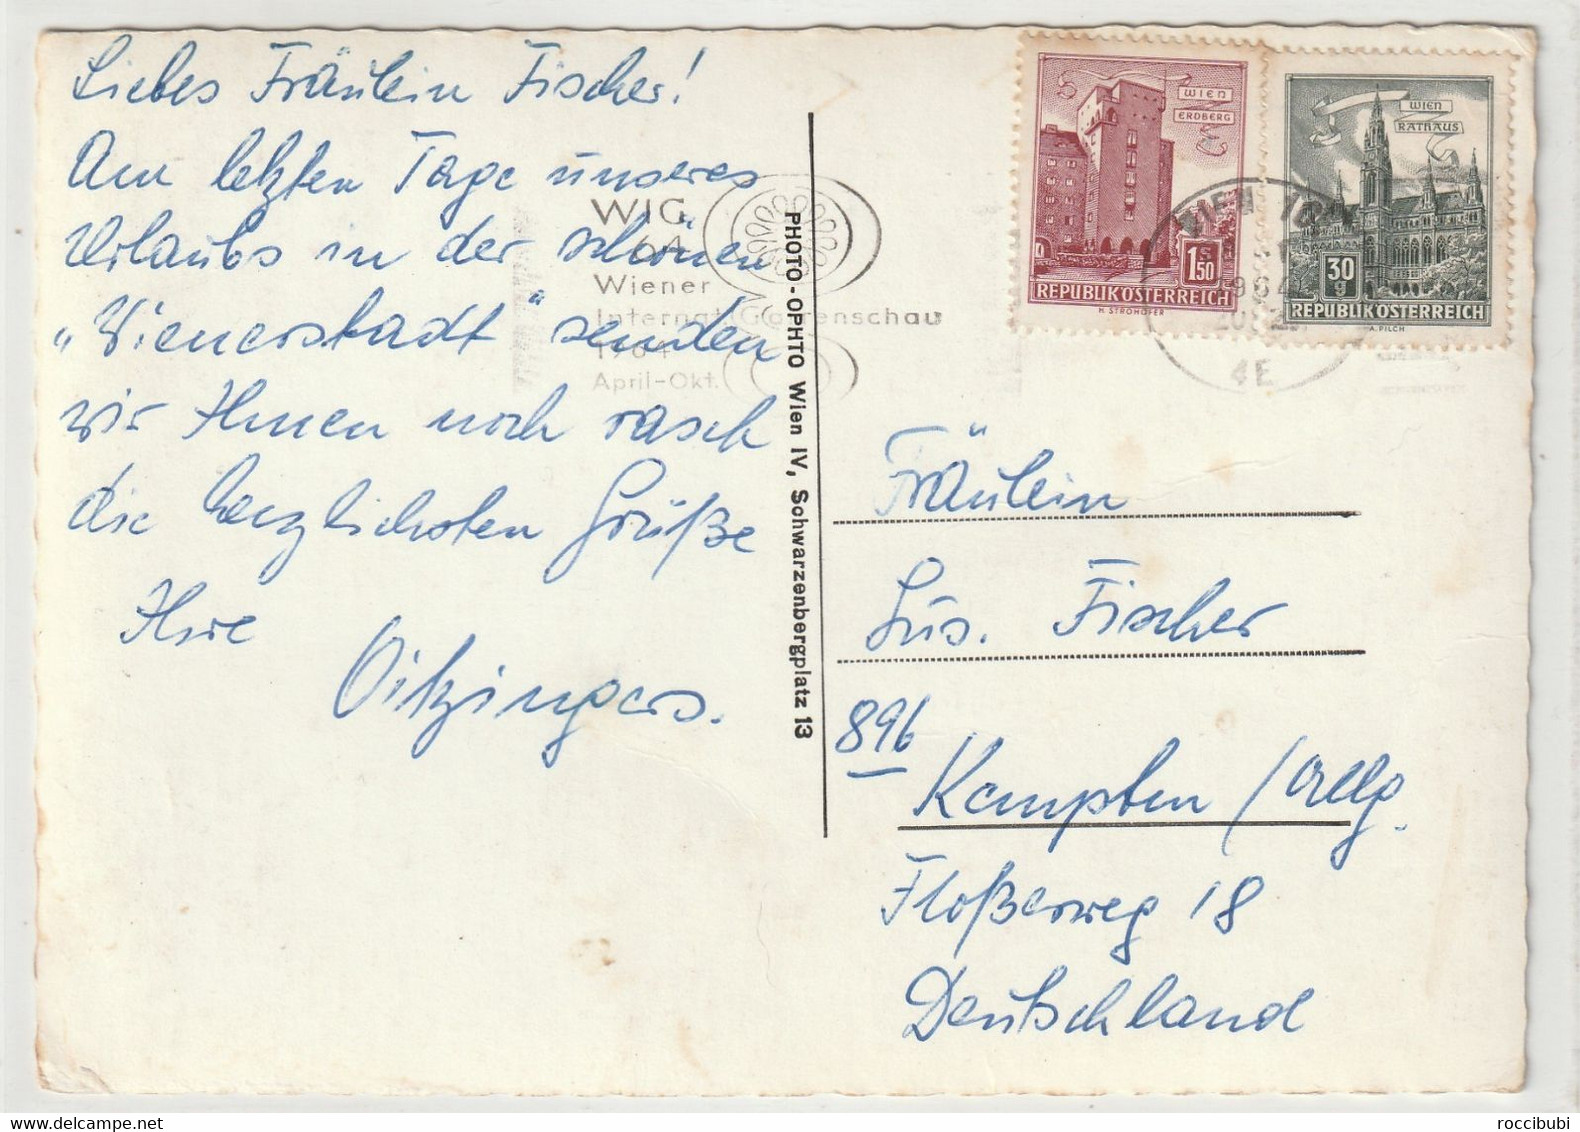 Liebes Fräulein Fischer!
Am letzten Tage unseres
Urlaubs in der schönen
„Wienerstadt“ senden
wir Ihnen noch rasch
die herzlichsten Grüße
Ihre
Oitzingers.
WIG
64
Wiener
Internat. Gartenschau
1964
April-Okt.
PHOTO-OPHTO Wien IV, Schwarzenbergplatz 13
WIEN
ERDBERG
1.50
REPUBLIK ÖSTERREICH
H. STROHOFER
WIEN
RATHAUS
30
g
REPUBLIK ÖSTERREICH
A. PILCH
WIEN
4E
Fräulein
Lus. Fischer
896
Kempten / Allg.
Floßerweg 18
Deutschland
roccibubi